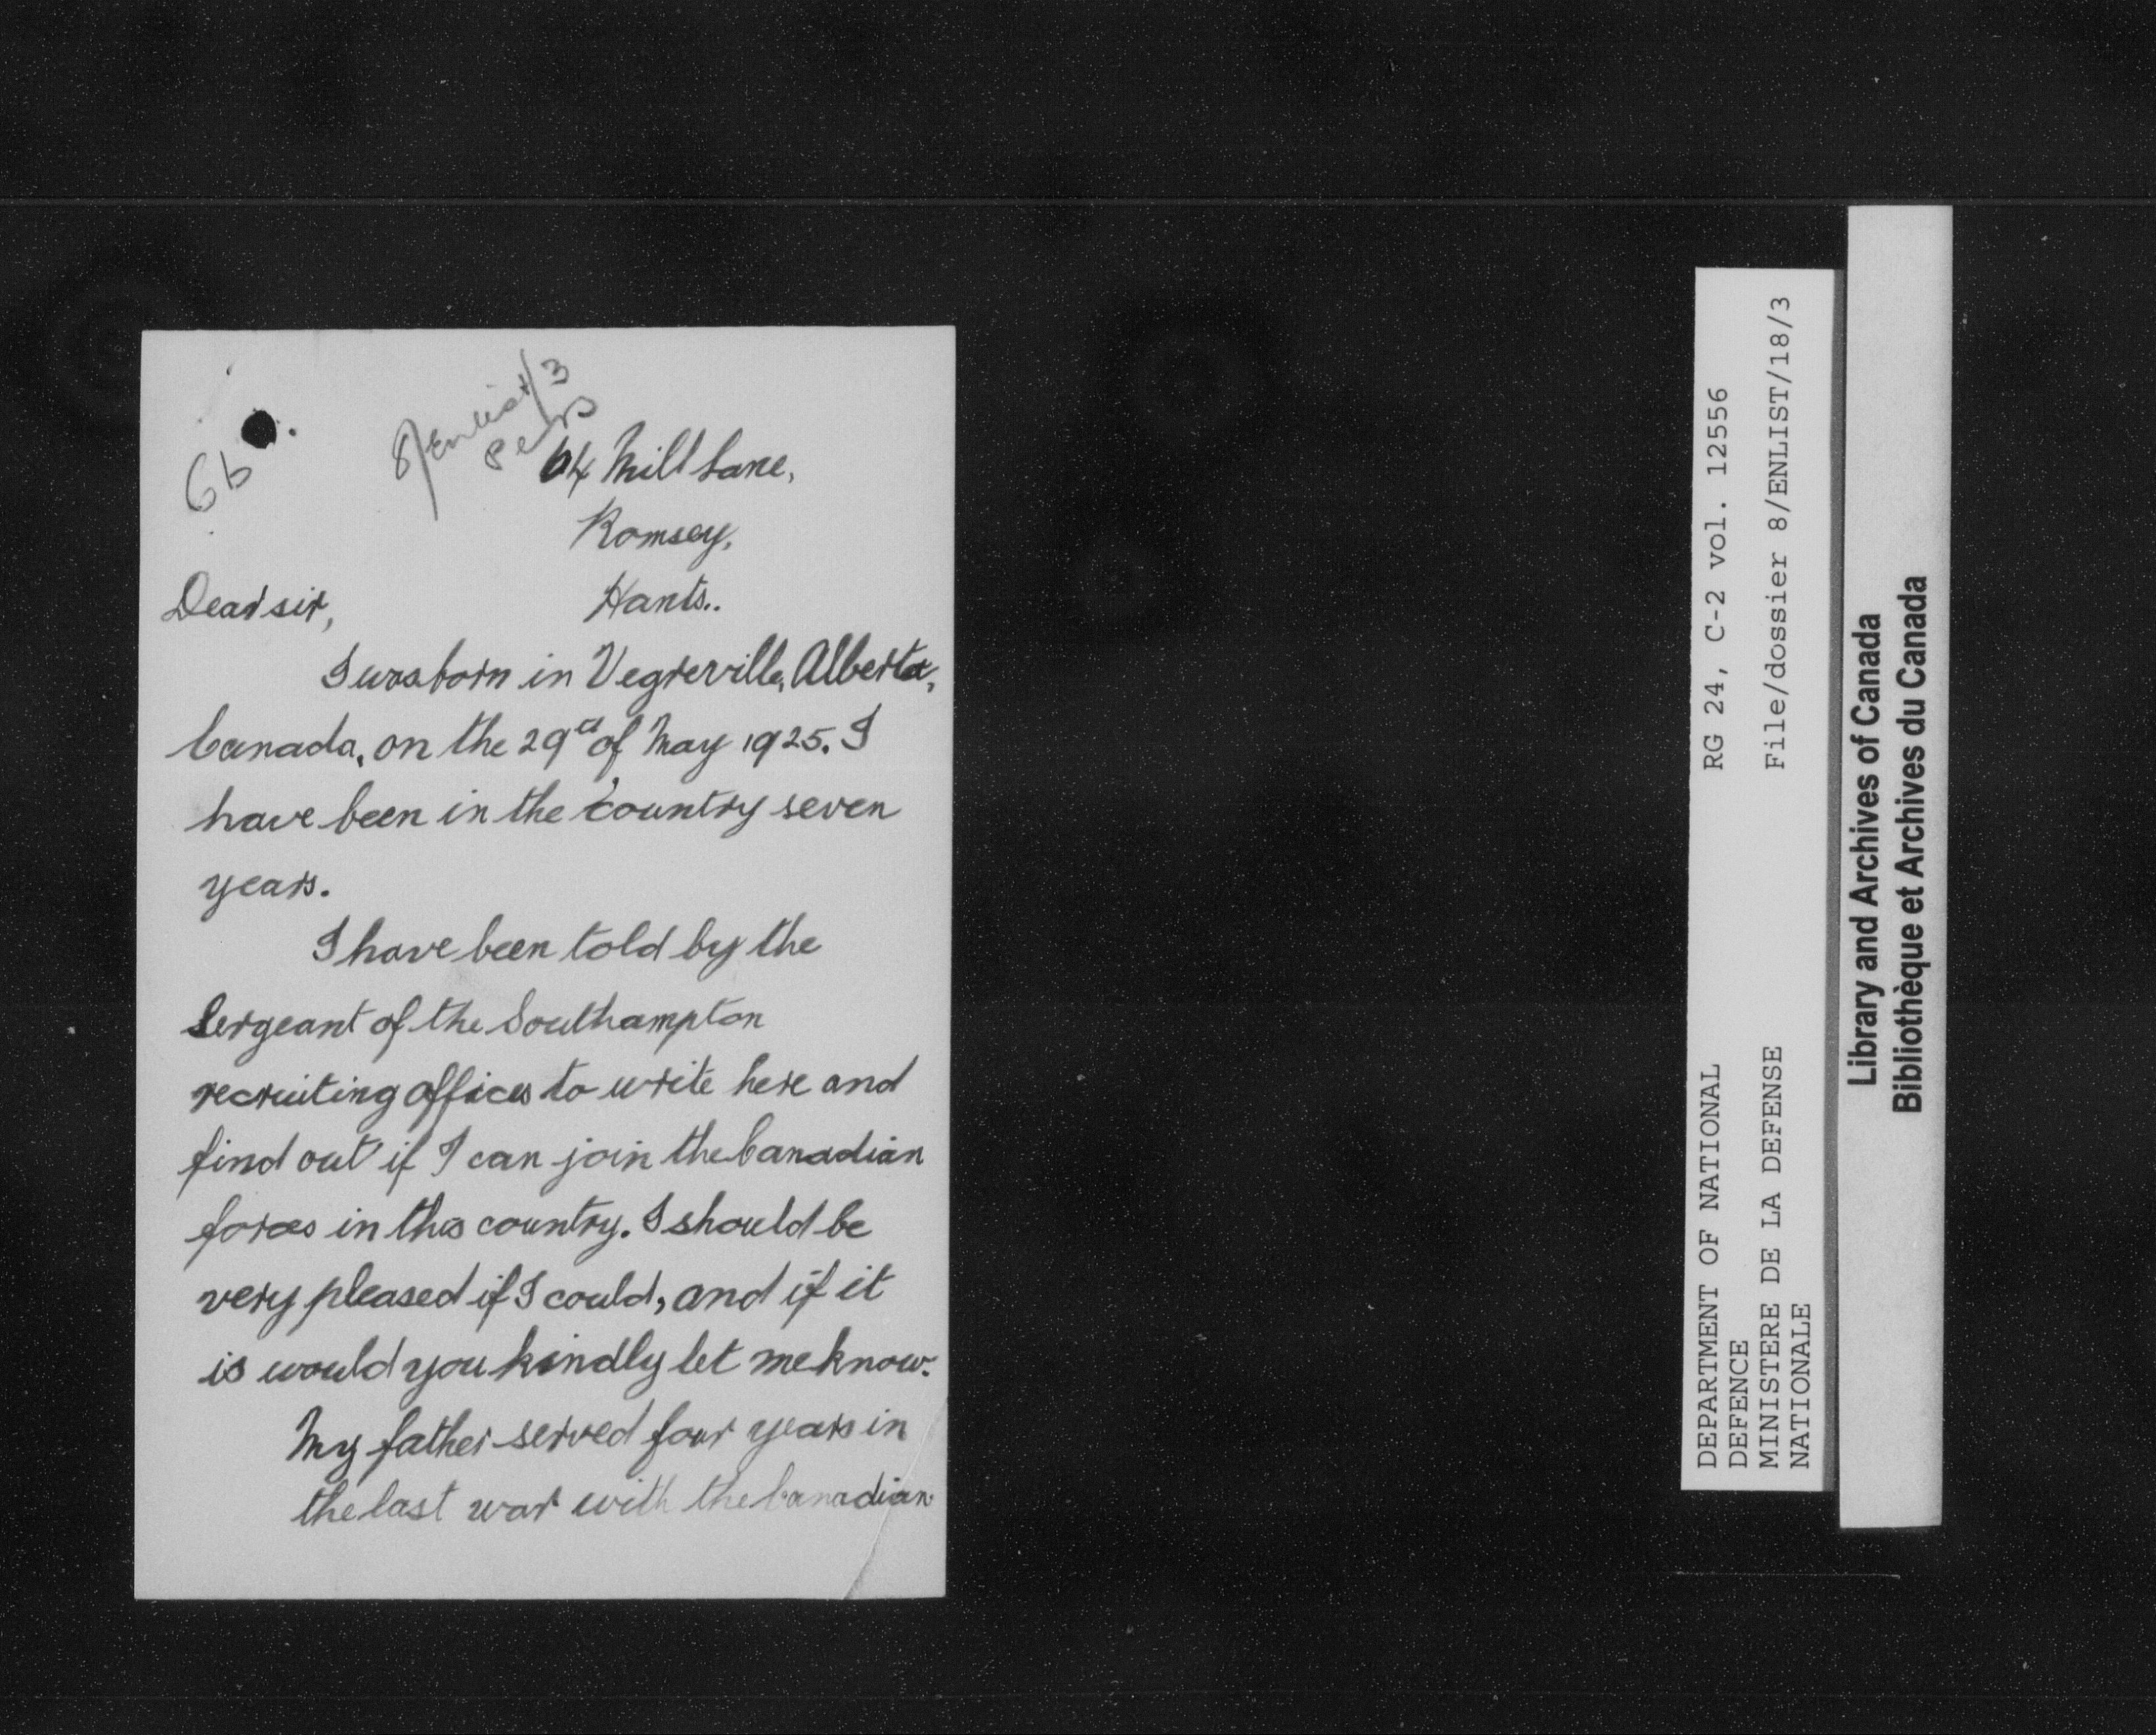 6b
8/Enlist/3
64 Mill Lane,
Romsey,
Hants..
Dear sir,
I was born in Vegreville, Alberta,
Canada, on the 29th of May 1925. I
have been in the country seven
years.
I have been told by the
Sergeant of the Southampton
recruiting offices to write here and
find out if I can join the Canadian
forces in this country. I should be
very pleased if I could, and if it
is would you kindly let me know.
My father served four years in
the last war with the Canadian
DEPARTMENT OF NATIONAL
DEFENCE
MINISTERE DE LA DEFENSE
NATIONALE
RG 24, C-2 vol. 12556
File/dossier 8/ENLIST/18/3
Library and Archives of Canada
Bibliothèque et Archives du Canada